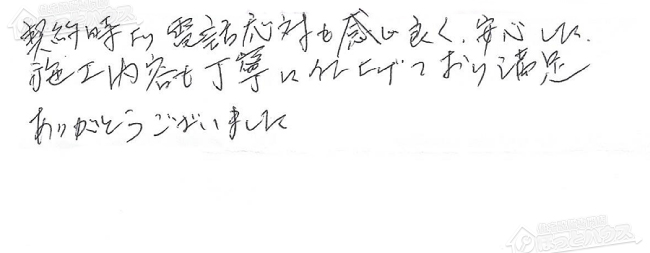 契約時の電話応対も感じ良く、安心した.
施工内容も丁寧に仕上げており満足
ありがとうございました